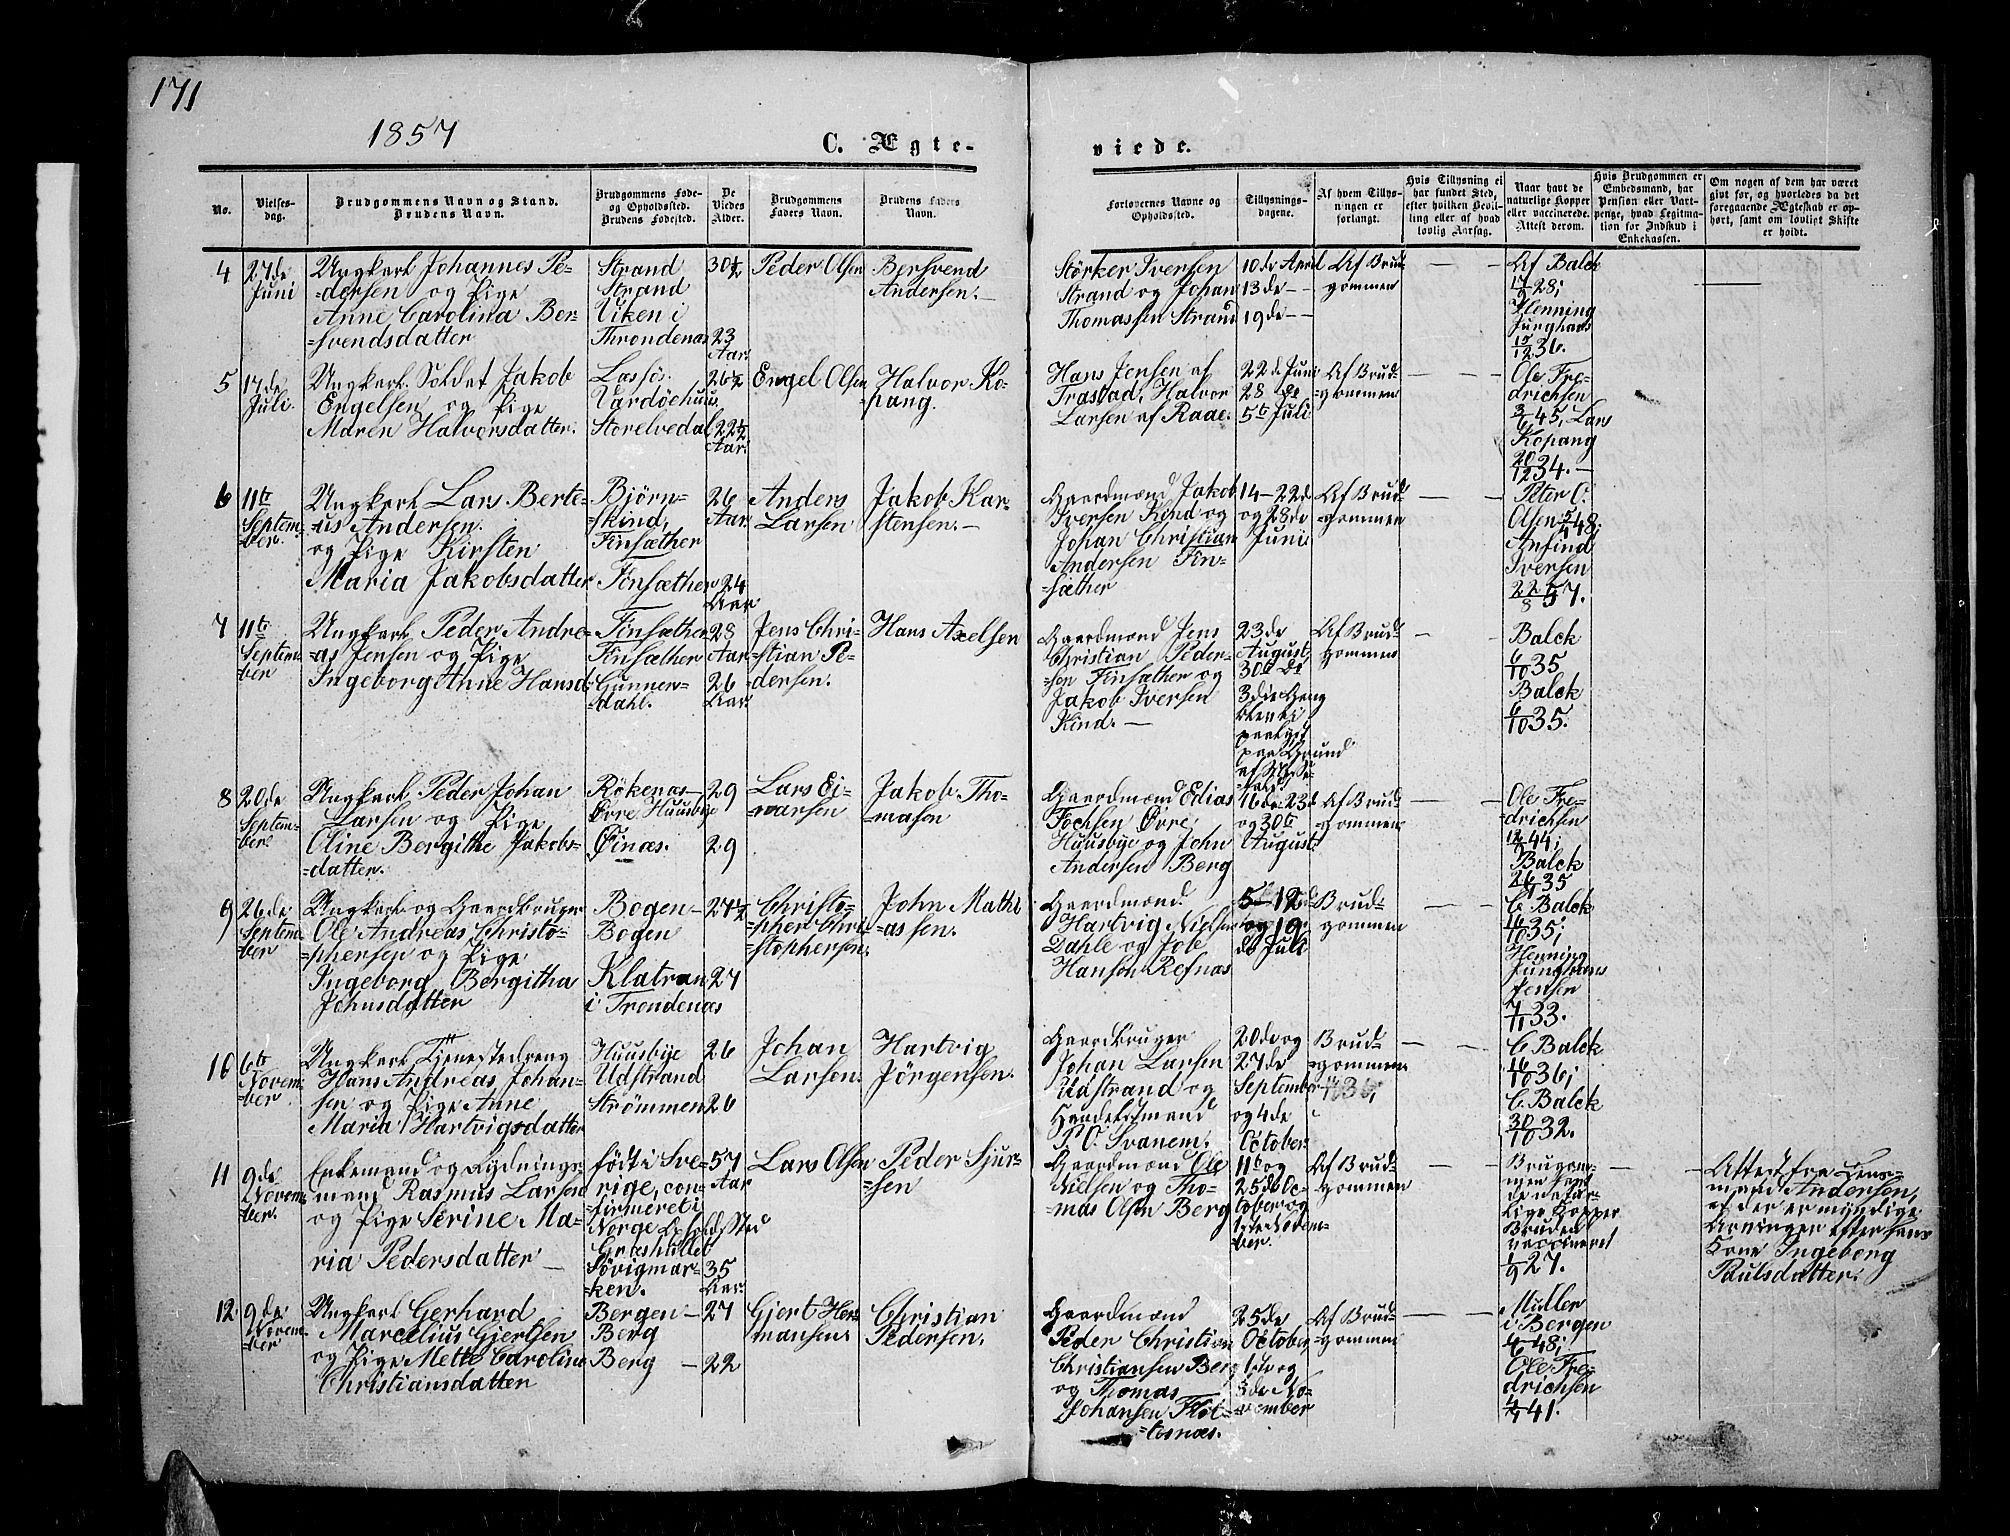 171
1857
C. Ægte-
viede.
No.
Vielses-
dag.
Brudgommens Navn og Stand.
Brudens Navn.
Brudgommens Føde-
og Opholdsted.
Brudens Fødested.
De
Viedes
Alder.
Brudgommens
Faders Navn.
Brudens Faders
Navn.
Forlovernes Navne og
Opholdsted.
Tillysnings-
dagene.
Af hvem Tillys-
ningen er
forlangt.
Hvis Tillysning ei
har fundet Sted,
efter hvilken Bevil-
ling eller af hvad
lovlig Aarsag.
Naar havt de
naturlige Kopper
eller vaccinerede.
Attest derom.
Hvis Brudgommen er
Embedsmand, har
Pension eller Vart-
penge, hvad Legitma-
tion for Indskud i
Enkekassen.
Om nogen af dem har været
gift før, og hvorledes da det
foregaaende Ægteskab er op-
hørt, samt om lovligt Skifte
er holdt.
4
27de
Juni
Ungkarl Johannes Pe-
=dersen og Pige
Anne Carolina Ber-
=svendsdatter
Strand
Strand
Viken i
Throndenas
30½
23
Aar
Peder Olsen
Bersvend
Andersen.—
Störker Iversen
Strand og Johan
Thomassen Strand
10de April
13de — —
19de — —
Af Brud-
gommen
Af Balck
17/9 28;
Henning
Junghans
15/12 36.
5
17de
Juli.
Ungkarl. Soldat Jakob
Engelsen og Pige
Maren Halvorsdatter.
Vardöehuus.
Storelvedal
26½
22½
Aar.
Engel Olsen
Halvor Ko-
pang.
Hans Jensen af
Trastad, Halvor
Larsen af Raae.
22de Juni
28 de
5te Juli
Af Brud-
=gommen
Ole Fre-
drichsen
3/6 45, Lars
Kopang
20/12 34.—
6
11te
Septem-
ber.
Ungkarl Lars Berte-
us Andersen.
og Pige Kirsten
Maria Jakobsdatter
Björn-
=skind,
Finsæther
Finsæther
26
Aar.
24
Aar
Anders
Larsen
Jakob Kar-
stensen.—
Gaardmænd Jakob
Iversen Kind og
Johan Christian
Andersen Fin-
=sæther
14—22de
og 28de
Juni
Af Brud-
=gommen
Peter O.
Olsen 5/7 48;
Arfind
Iversen
22/8 57.
7
11te
Septem-
ber
Ungkarl Peder Andre-
=as Jensen og Pige
Ingeborg Anne Hansd.
Finsæther
Finsæther
Gunner-
dahl.
28
Aar
26
Aar.
Jens Chri-
=stian Pe-
dersen.
Hans Axelsen
Gaardmænd Jens
Christian Peder-
=sen Finsæther og
Jakob Iversen
Kind.—
23de
August,
30te do
3die Gang
blev ei
paalyst
paa Grund
af Messe-
fald
Af Brud-
gommen
Balck
6/10 35
Balck
6/10 35.
8
20de
Septem-
ber.
Ungkarl Peder Johan
Larsen og Pige
Oline Bergithe Jakobs-
=datter.
Rökenas—
Övre Huusbye
Öinæs.
29
29
Lars Ei-
=varsen
Jakob Tho-
=masen
Gaardmænd Edias
Fochsen Övre,
Huusbye og John
Andersen Berg
16de 23de
og 30te
August.
Af Brud-
=gommen
Ole Fre-
drichsen
12/7 44;
Balck
26/9 35
9
26de
Septem-
=ber
Ungkarl og Gaardbruger
Ole Andreas Christo-
=phersen og Pige
Ingeborg Bergitha
Johnsdatter
Bogen—
Bogen
Klatran
i Trondenæs
27½
27
Christo-
=pher Chri-
stophersen.
John Mathi-
=assen.
Gaardmænd.
Hartvig Nielsen
Dahle og Job
Hansen Refnæs
5te 12de
og 19
de Juli
Brud-
gommen
C. Balck
16/10 35;
Henning
Junghans
Jensen
7/11 33.
10
6te
Novem-
ber
Ungkarl Tjenestedreng
Hans Andreas Johan-
sen og Pige Anne
Maria Hartvigsdatter
Huusbye
Udstrand
Strömmen
26
26
Johan
Larsen.
Hartvig
Jörgensen.
Gaardbruger
Johan Larsen
Udstrand og
Handelsmand
P. O. Svanem.
20de og
27de
September
og 4de
October.
Brud-
gommen
C. Balck
16/10 36;
C. Balck
30/10 32.
11
9de
Novem-
ber.
Enkemand og Rydnings-
mand Rasmus Larsen
og Pige Serine Ma-
ria Pedersdatter —
födt i Sve-
rige, con-
=firmeret i
Norge Opholdssted
Græshullet
Sövigmar-
ken.
57
Aar
35
Aar.
Lars Olsen
Peder Sjur-
=sen
Gaardmænd Ole
Nielsen og Tho-
mas Olsen Berg
11te og
25de Oc-
tober og
1ste Novem-
ber.
Af Brud-
gommen
Brugom-
men havt
de natur-
lige Kopper
Bruden
vaccineret
1/9 27.
Attest fra Lens-
mand Andersen,
at der er myndige
Arvinger efter hans
Kone Ingeborg
Paulsdatter.
12.
9de
Novem-
=ber
Ungkarl Gerhard
Marcelius Gjertsen
og Pige Mette Carolina
Christiansdatter
Bergen—
Berg
Berg —
27
22
Gjert Her-
mansen.
Christian
Pedersen.
Gaardmænd
Peder Christian
Christiansen Berg
og Thomas
Johansen Flöt-
=tenæs.
25de
October,
1ste og
8de No-
vember
Af Brud-
gommen
Müller
i Bergen
4/6 48;
Ole Fre-
drichsen
4/7 41.